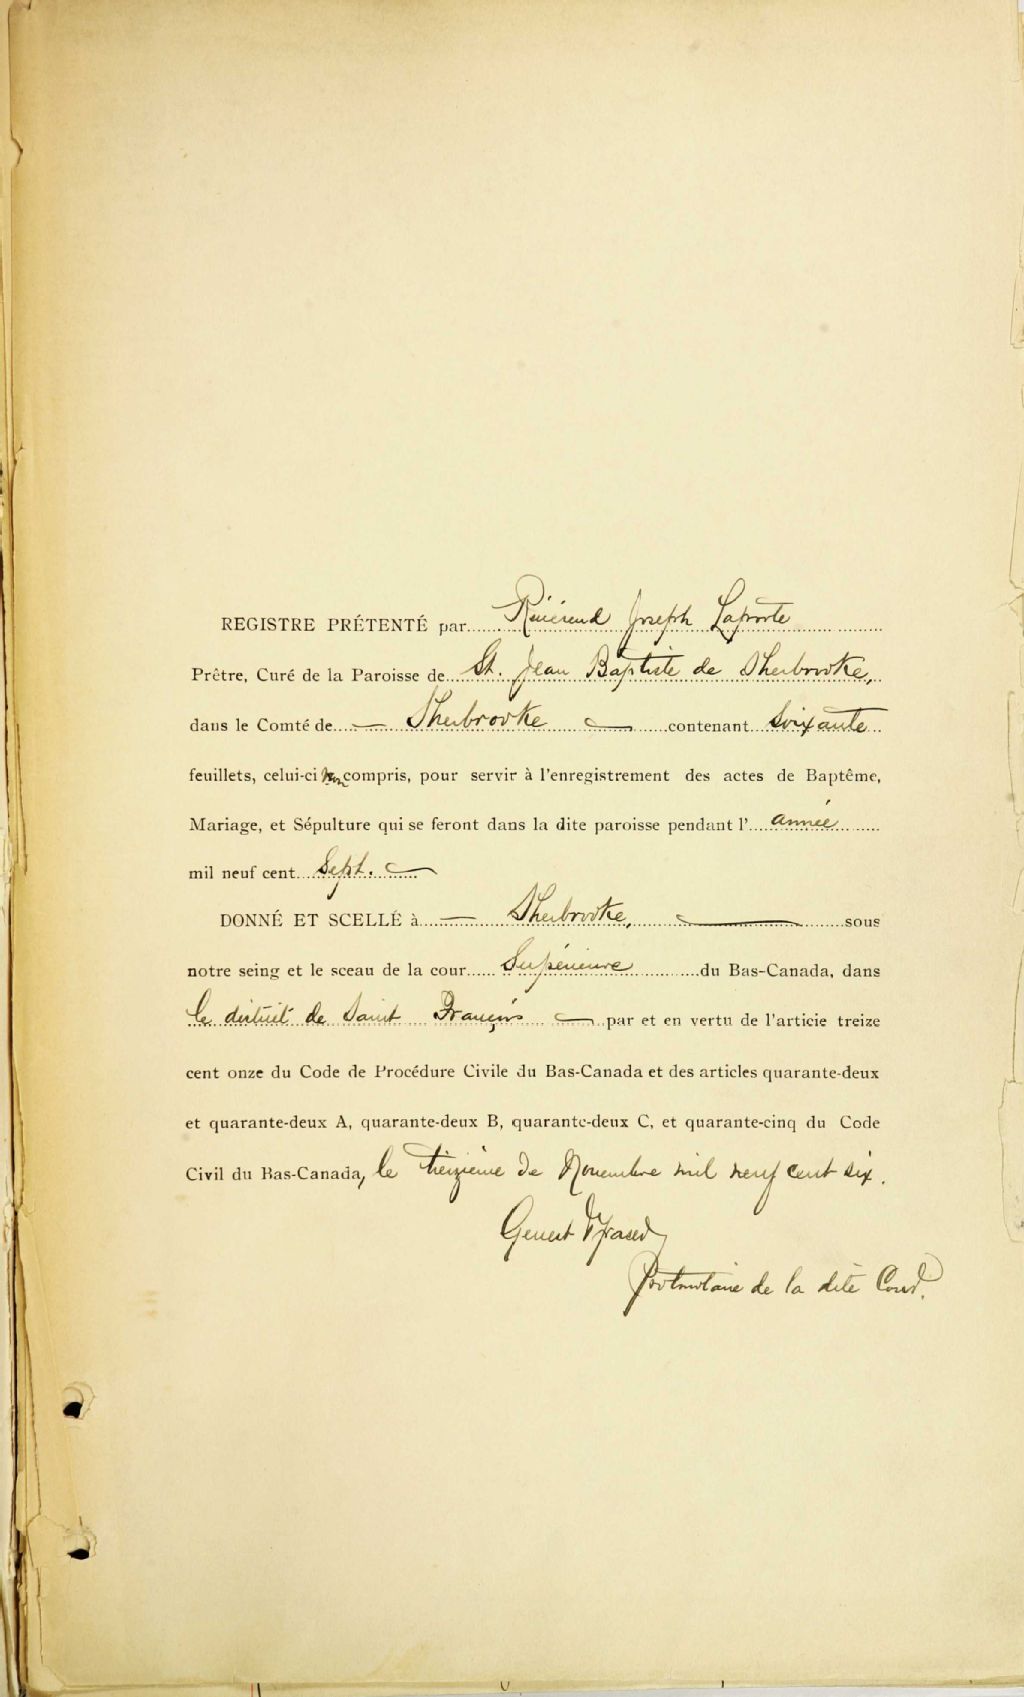 REGISTRE PRÉTENTÉ par Révérend Joseph Laporte
Prêtre, Curé de la Paroisse de St. Jean Baptiste de Sherbrooke,
dans le Comté de — Sherbrooke — contenant soixante
feuillets, celui-ci non compris, pour servir à l'enregistrement des actes de Baptême,
Mariage, et Sépulture qui se feront dans la dite paroisse pendant l' année
mil neuf cent Sept. —
DONNÉ ET SCELLÉ à — Sherbrooke, — sous
notre seing et le sceau de la cour Supérieure du Bas-Canada, dans
le district de Saint François — par et en vertu de l'articie treize
cent onze du Code de Procédure Civile du Bas-Canada et des articles quarante-deux
et quarante-deux A, quarante-deux B, quarante-deux C, et quarante-cinq du Code
Civil du Bas-Canada, le treizième de Novembre mil neuf cent six.
Genest & Fraser
Protonotaire de la dite Cour.